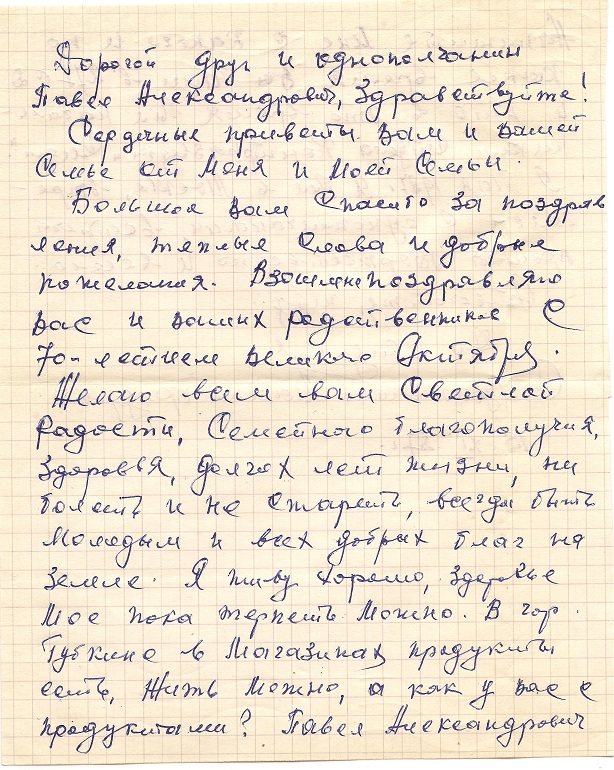 Дорогой друг и однополчанин
Павел Александрович, Здравствуйте!
Сердечные приветы вам и вашей
Семье от Меня и Моей Семьи.
Большое вам Спасибо За поздрав
ления, теплые Слова и добрые
пожелания. Взаимно поздравляю
вас и ваших родственников С
70-летием Великого Октября.
Желаю всем вам Светлой
Радости, Семейного благополучия,
Здоровья, долгих лет жизни, ни
болеть и не Стареть, всегда быть
Молодым и всех добрых благ на
Земле. Я живу хорошо, здоровье
Мое пока терпеть Можно. В гор.
Губкине в Магазинах продукты
есть, Жить Можно, а как у вас с
продуктами? Павел Александрович